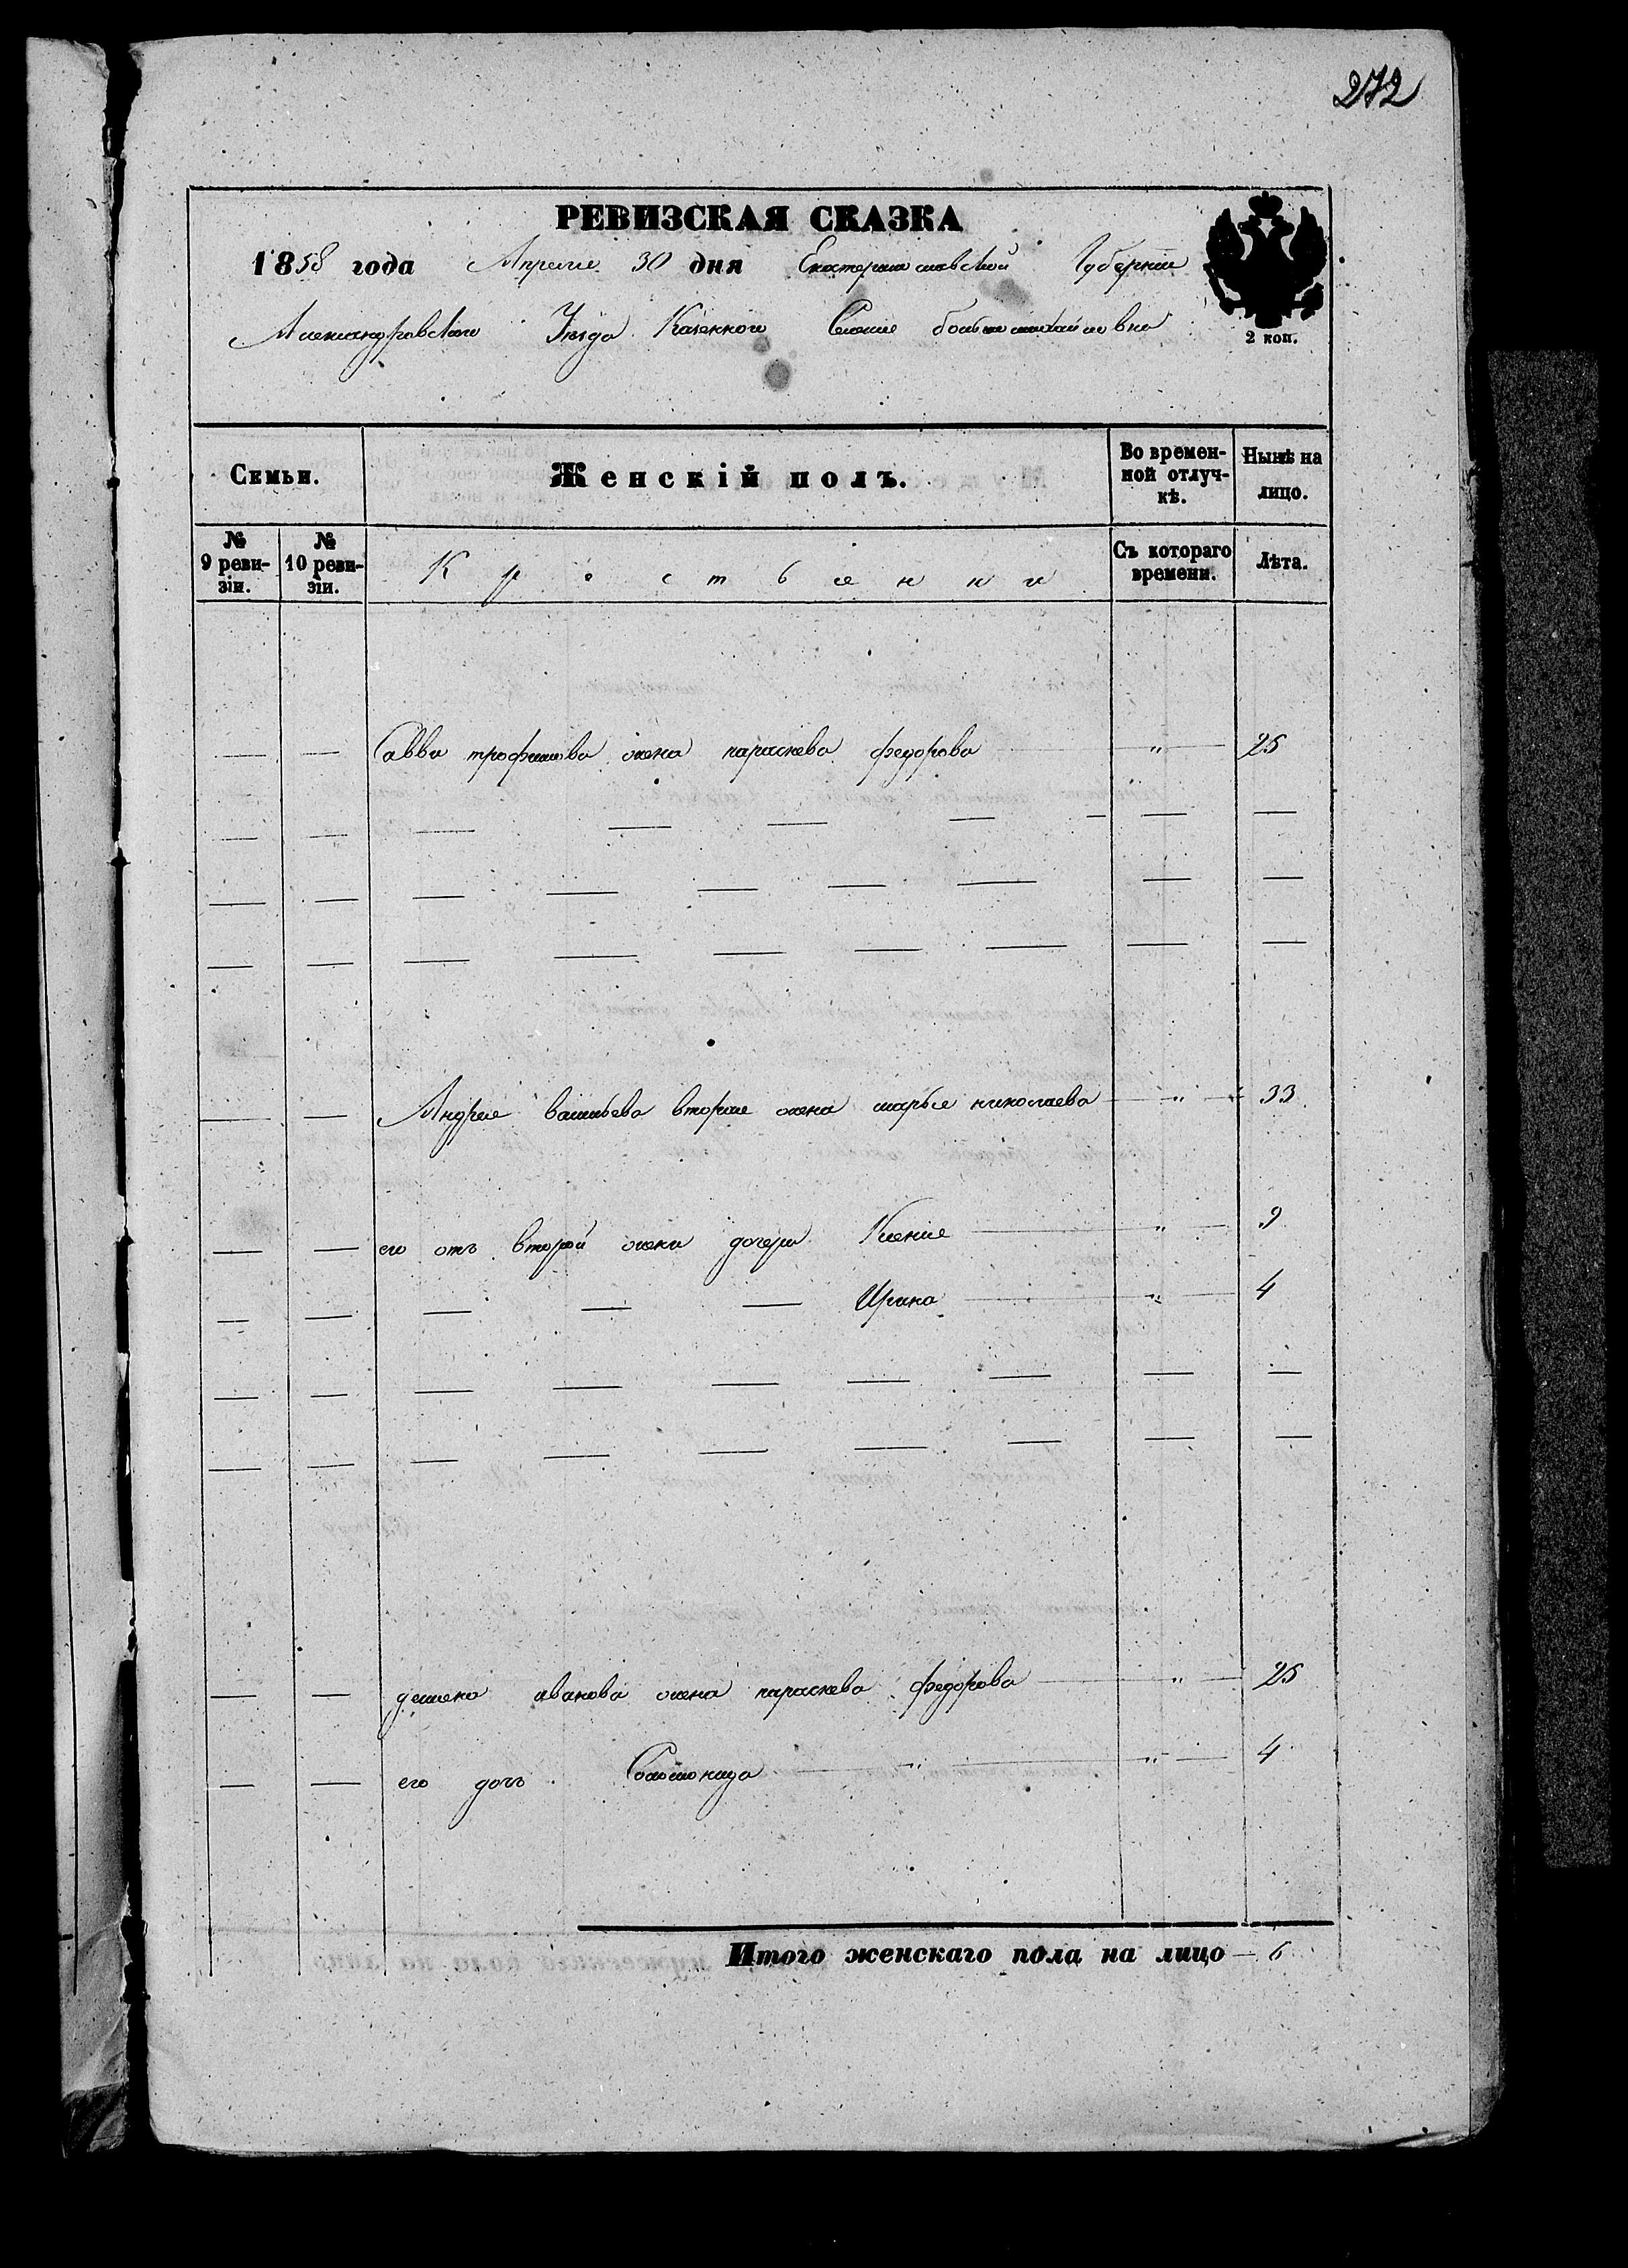 272
РЕВИЗСКАЯ СКАЗКА
1858 года Апреля 30 дня Екатеринославской Губернии
Александровского Уезда Казенного Селение
2 коп.
Семьи.
Женскій полъ.
Во времен-
ной отлуч-
кѣ.
Нынѣ на
лицо.
№
9 реви-
зіи.
№
10 реви-
зіи.
Съ котораго
времени.
Лѣта.
Савва трофимова жена параскева федорова — " — 25
Андрея васильева вторая жена марья николаева — " — 33
его отъ второй жени дочери Ксения — " — 9
Ирина — " — 4
демена иванова жена параскева федорова — " — 25
его дочь Соломонида — " — " — 4
Итого женскаго пола на лицо — 6